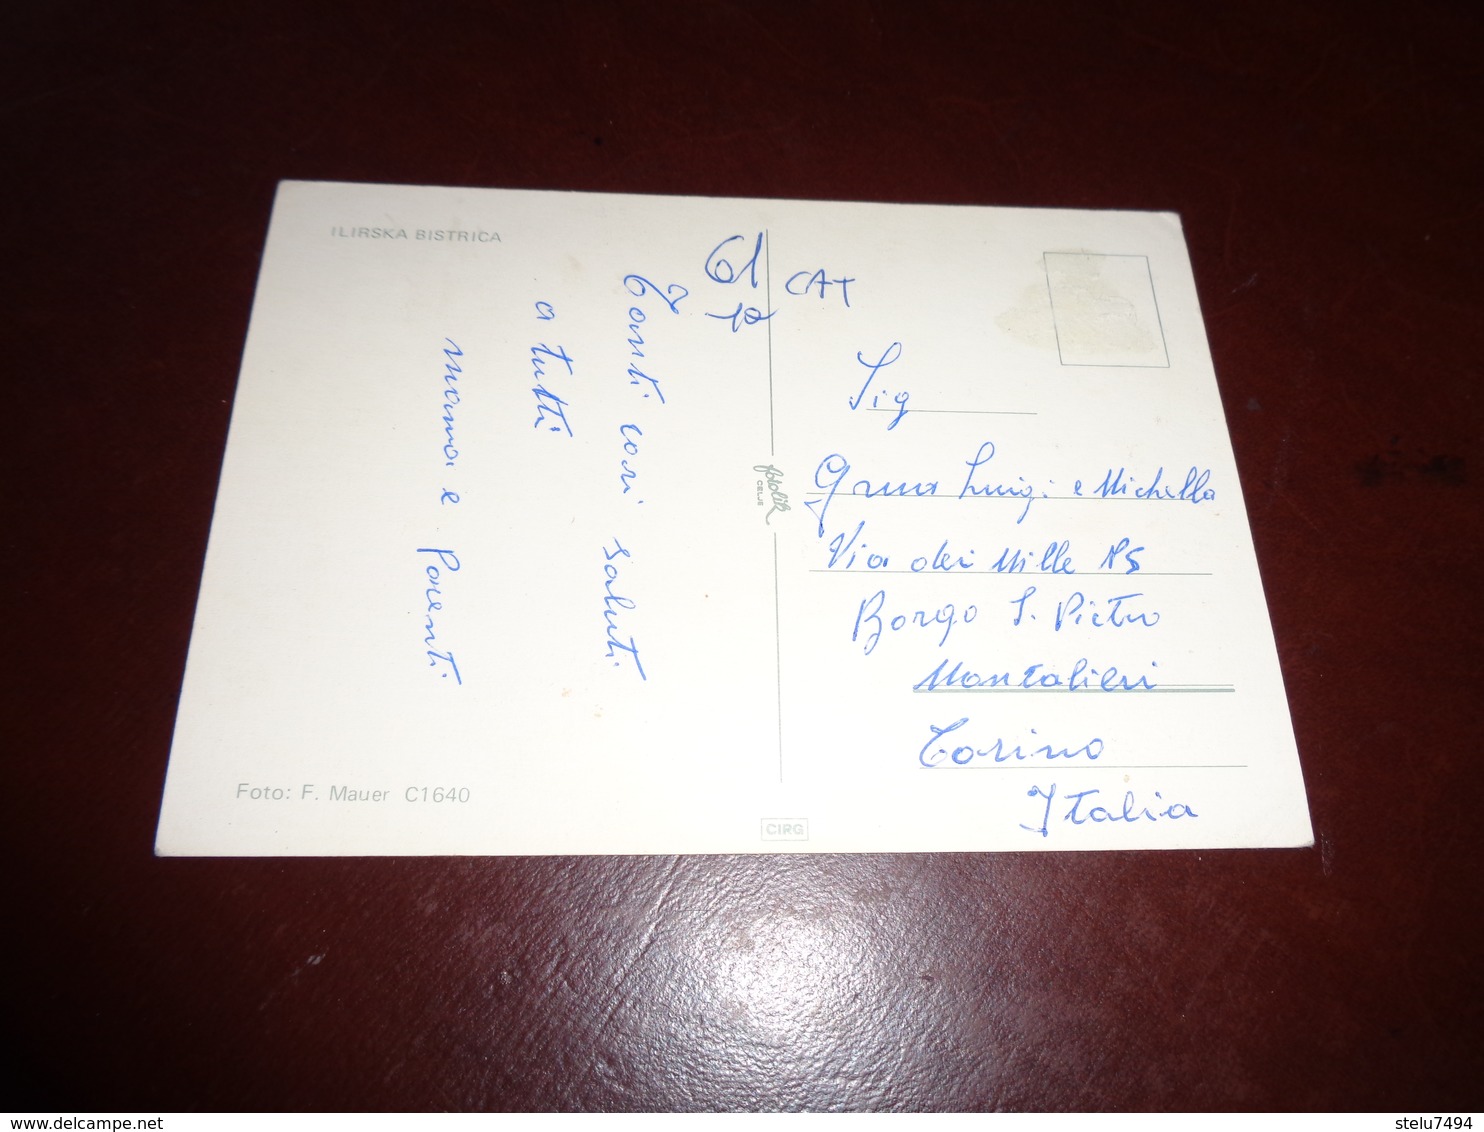 ILIRSKA BISTRICA
Tanti cari saluti
a tutti
mama e Parenti
Foto: F. Mauer C1640
fotolik
CELJE
CIRG
CAT
Sig
Luigi e Michella
Via dei Mille 15
Borgo S. Pietro
Montalieri
Torino
Italia
www.delcampe.net
stelu7494